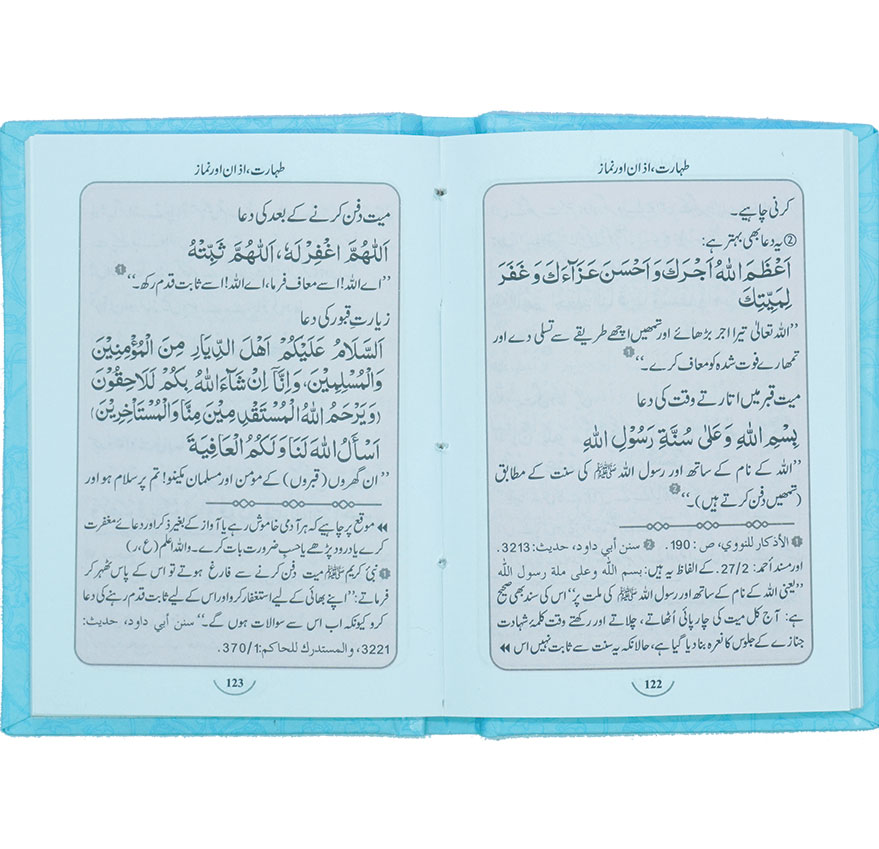 طہارت، اذان اور نماز
کرنی چاہیے۔
② یہ دعا بھی بہتر ہے:
اَعْظَمَ اللّٰهُ اَجْرَكَ وَاَحْسَنَ عَزَآءَكَ وَغَفَرَ
لِمَيِّتِكَ
”اللہ تعالیٰ تیرا اجر بڑھائے اور تمھیں اچھے طریقے سے تسلی دے اور
تمھارے فوت شدہ کو معاف کرے۔“ ❶
میت قبر میں اتارتے وقت کی دعا
بِسْمِ اللّٰهِ وَعَلٰى سُنَّةِ رَسُوْلِ اللّٰهِ
”اللہ کے نام کے ساتھ اور رسول اللہ ﷺ کی سنت کے مطابق
(تمھیں دفن کرتے ہیں)۔“ ❷
❶ الأذكار للنووي، ص: 190. ❷ سنن أبي داود، حديث: 3213.
اور مسند أحمد: 27/2. کے الفاظ یہ ہیں: بسم الله وعلى ملة رسول الله
”یعنی اللہ کے نام کے ساتھ اور رسول اللہ ﷺ کی ملت پر“ اس کی سند بھی صحیح
ہے: آج کل میت کی چارپائی اُٹھاتے، چلاتے اور رکھتے وقت کلمۂ شہادت
جنازے کے جلوس کا نعرہ بنا دیا گیا ہے، حالانکہ یہ سنت سے ثابت نہیں اس ◀◀
122
طہارت، اذان اور نماز
میت دفن کرنے کے بعد کی دعا
اَللّٰهُمَّ اغْفِرْلَهٗ، اَللّٰهُمَّ ثَبِّتْهُ
”اے اللہ! اسے معاف فرما، اے اللہ! اسے ثابت قدم رکھ۔“ ❶
زیارتِ قبور کی دعا
اَلسَّلَامُ عَلَيْكُمْ اَهْلَ الدِّيَارِ مِنَ الْمُؤْمِنِيْنَ
وَالْمُسْلِمِيْنَ، وَاِنَّآ اِنْ شَآءَ اللّٰهُ بِكُمْ لَلَاحِقُوْنَ
(وَيَرْحَمُ اللّٰهُ الْمُسْتَقْدِمِيْنَ مِنَّا وَالْمُسْتَاْخِرِيْنَ)
اَسْأَلُ اللّٰهَ لَنَا وَلَكُمُ الْعَافِيَةَ
”ان گھروں (قبروں) کے مؤمن اور مسلمان مکینو! تم پر سلام ہو اور
◀◀ موقع پر چاہیے کہ ہر آدمی خاموش رہے یا آواز کے بغیر ذکر اور دعائے مغفرت
کرے یا درود پڑھے یا حسبِ ضرورت بات کرے۔ واللہ اعلم (ع،ر)
❶ نبیٔ کریم ﷺ میت دفن کرنے سے فارغ ہوتے تو اس کے پاس ٹھہر کر
فرماتے: ”اپنے بھائی کے لیے استغفار کرو اور اس کے لیے ثابت قدم رہنے کی دعا
کرو کیونکہ اب اس سے سوالات ہوں گے۔“ سنن أبي داود، حديث:
3221، والمستدرك للحاكم: 370/1.
123